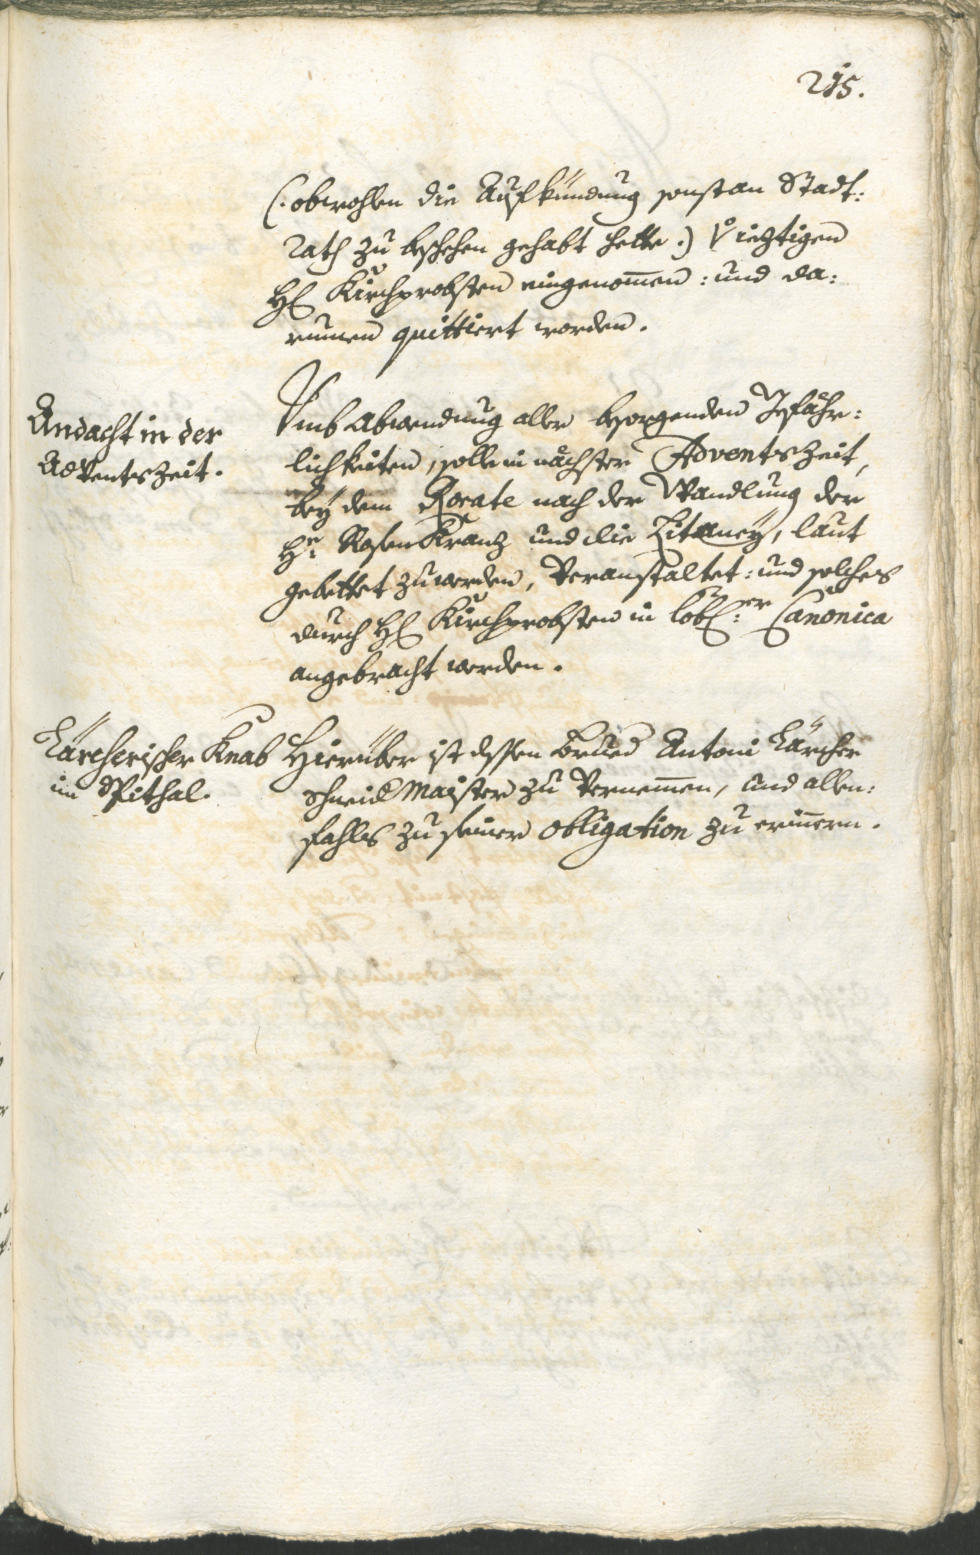 215.
(: obwohlen die Aufkündung sonst an Stadt:
Rath zu beschehen gehabt hette :) richtigen
H: Kirchprobsten eingenom̅en: und da:
rumen quittiert worden.
Andacht in der
Adventszeit.
Umb Abwendung aller besorgenden Gefähr:
lichkeiten, solle in nächster Adventszeit,
bey dem Rorate nach der Wandlung der
H: Rosenkranz und die Litaney, laut
gebettet zu werden, veranstaltet: und solches
durch H: Kirchprobsten in löbl:er Canonica
angebracht werden.
Kärcherischer Knab
im Spithal.
Hierüber ist dessen Brued Antoni Kärcher
Schneid Maister zu vernem̅en, und allen:
fahls zu seiner obligation zu erin̅ern.